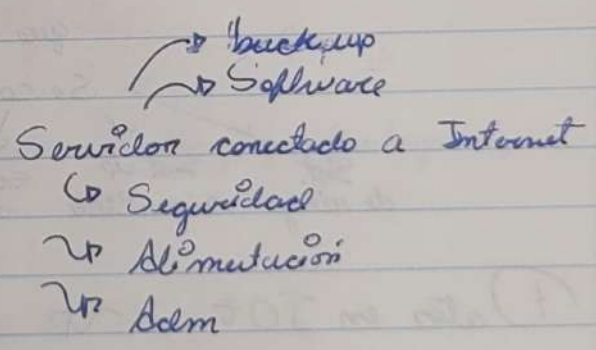 back up
Software
Servidor conectado a Internet
Seguridad
Alimentación
Adm